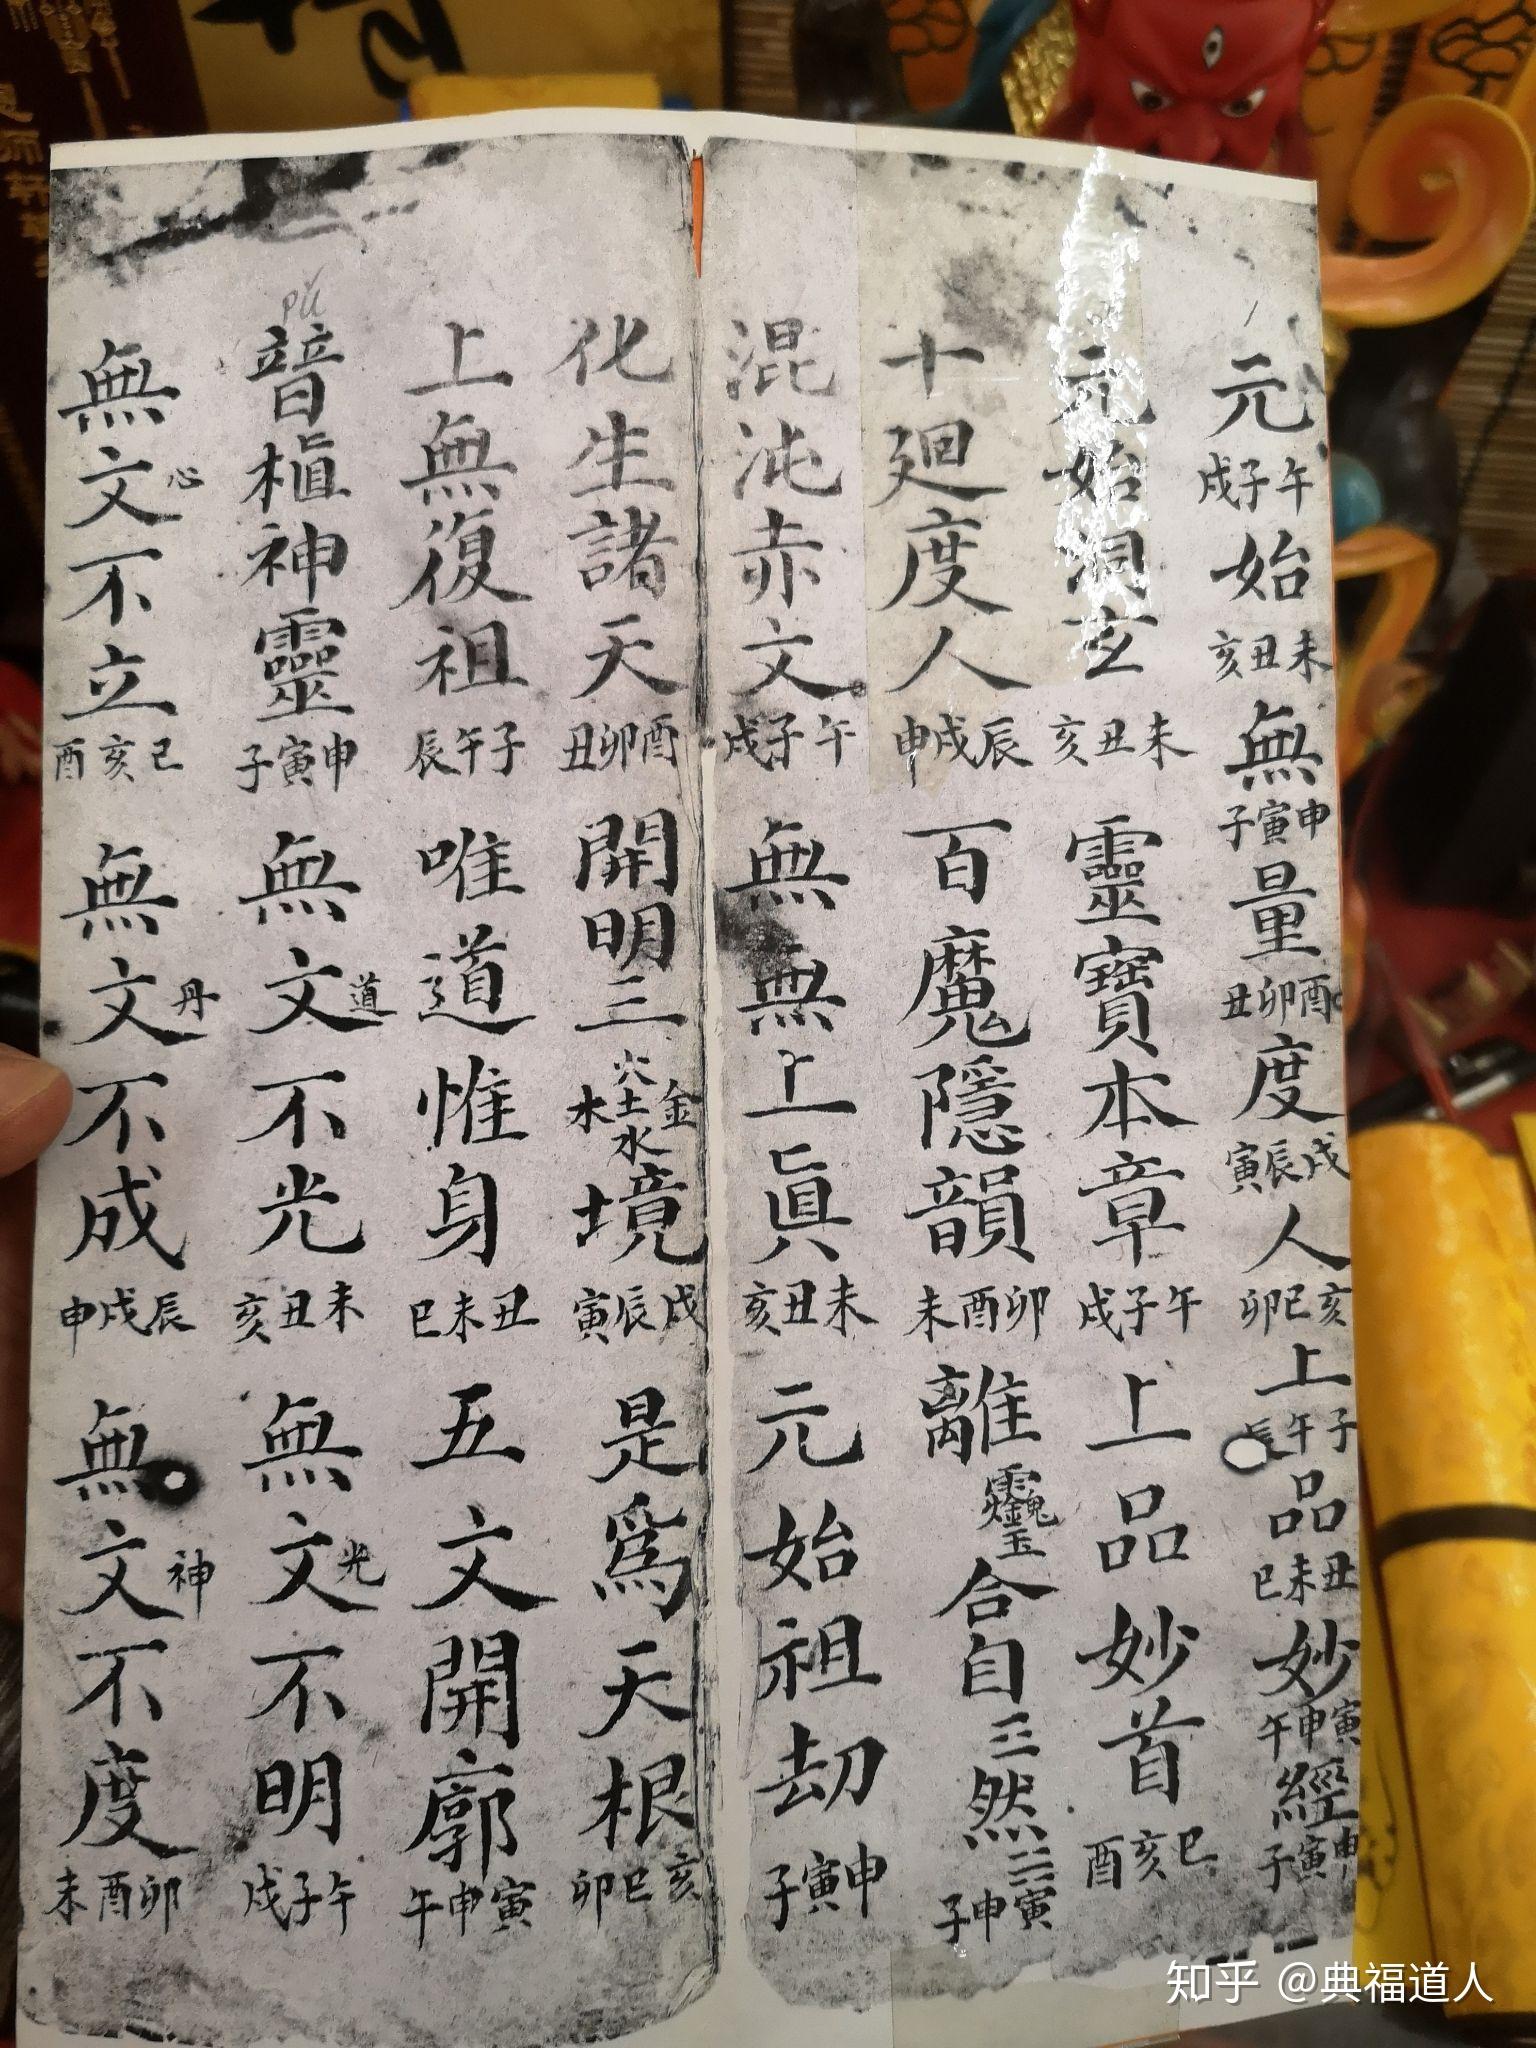 元午子戌始未丑亥無申寅子量酉卯丑度戌辰寅人亥巳卯上子午辰品丑未巳妙寅申午經申寅子
元始洞玄未丑亥靈寶本章午子戌上品妙首巳亥酉
十廻度人辰戌申百魔隱韻卯酉未離合自三然二三寅申子
混沌赤文午子戌無無上真未丑亥元始祖劫申寅子
化生諸天酉卯丑開明三火木土金水境戌辰寅是為天根亥巳卯
上無復祖子午辰唯道惟身丑未巳五文開廓寅申午
pǔ
普植神靈申寅子無文道不光未丑亥無文光不明午子戌
無文心不立巳亥酉無文丹不成辰戌申無文神不度卯酉未
知乎 @典福道人